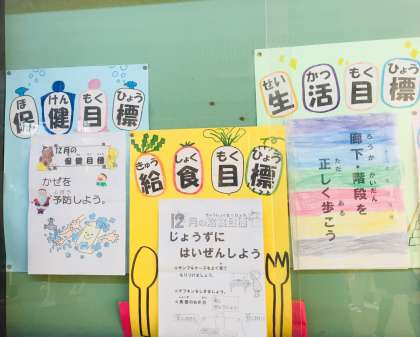 ほ けん もく ひょう
保健目標
12月の
保健目標
かぜを
予防しよう。
きゅう しょく もく ひょう
給食目標
12月の給食目標
じょうずに
はいぜんしよう
せい かつ もく ひょう
生活目標
ろうか かいだん
廊下・階段を
ただ ある
正しく歩こう